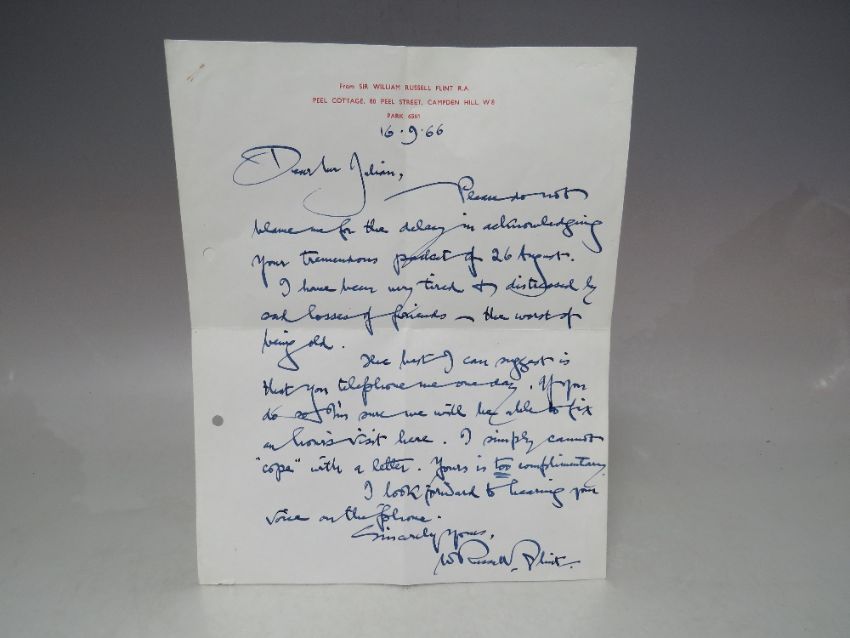 From SIR WILLIAM RUSSELL FLINT R.A.
PEEL COTTAGE, 80 PEEL STREET, CAMPDEN HILL, W8
PARK 6561
16·9·66
Dear Mr Julian,
Please do not
blame me for the delay in acknowledging
your tremendous packet of 26 August.
I have been very tired & distressed by
sad losses of friends – the worst of
being old.
The best I can suggest is
that you telephone me one day. If you
do so I'm sure we will be able to fix
an hour's visit here. I simply cannot
"cope" with a letter. Yours is too complimentary.
I look forward to hearing your
voice on the phone.
Sincerely Yours,
W Russell Flint.